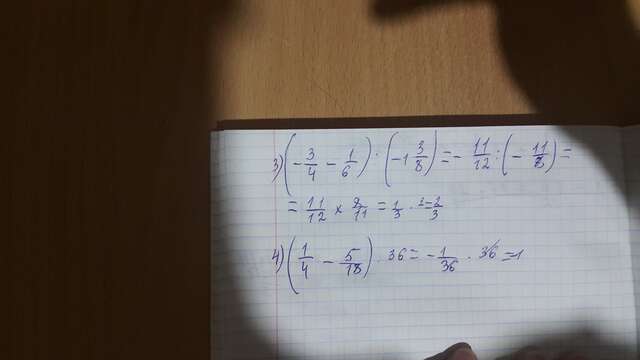 3) (-3/4 - 1/6) : (-1 3/8) = -11/12 : (-11/8) =
= 11/12 × 8/11 = 1/3 · 2 = 2/3
4) (1/4 - 5/18) · 36 = -1/36 · 36 = 1